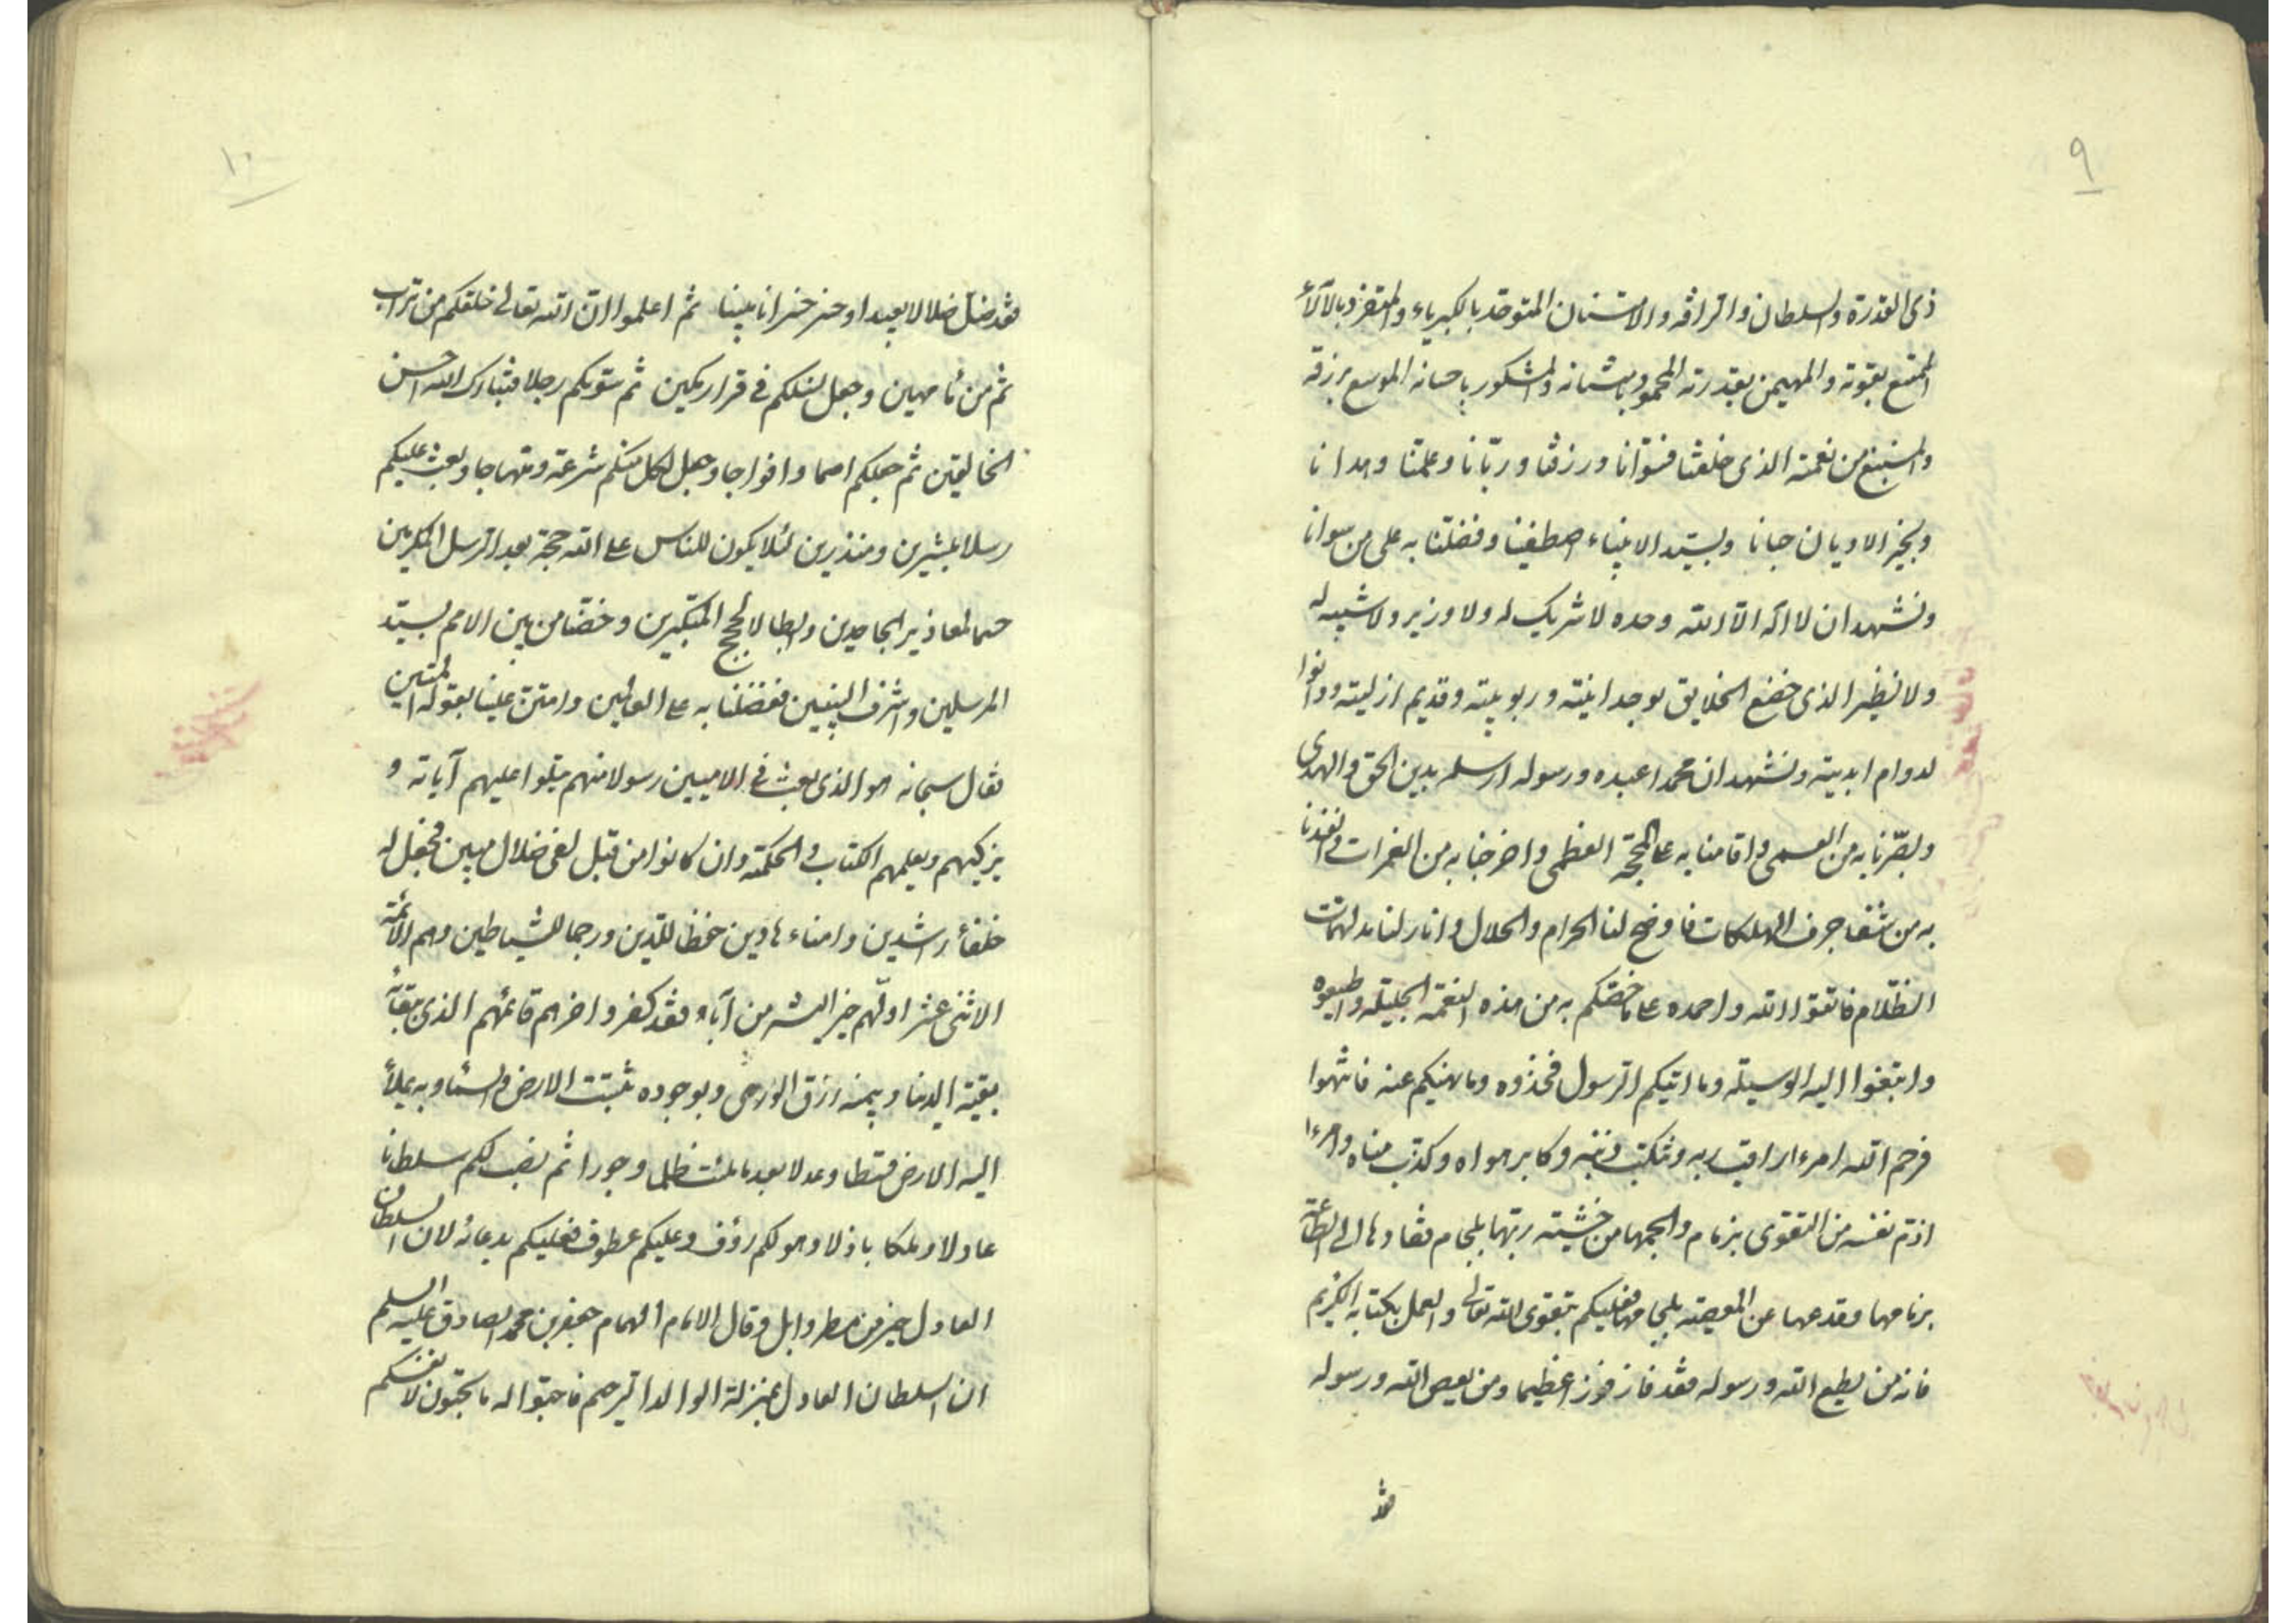 ٩
ذى القدرة والسلطان والرافه والامتنان المتوحد بالكبرياء والمتفرد بالآلآء
الممتنع بقوته والمهيمن بقدرته المحمود بامتنانه والمشكور باحسانه الموسع برزقه
والمسبغ من نعمته الذى خلقنا فسوّانا ورزقنا وربّانا وعلمنا وهدانا
وبخير الاديان حبانا وبسيّد الانبياء اصطفينا وفضلنا به على من سوانا
ونشهد ان لا اله الّا الله وحده لا شريك له ولا وزير ولا شبيه له
ولا نظير الذى خضع الخلايق لوحدانيته وربوبيته وقديم ازليته ودانوا
لدوام ابديته ونشهد ان محمدا عبده ورسوله ارسله بدين الحق والهدى
وبصّرنا به من العمى واقامنا به على المحجّة العظمى واخرجنا به من الغمرات وانقذنا
به من شفا جرف الهلكات فاوضح لنا الحرام والحلال وانار لنا مدلهمّات
الظلام فاتقوا الله واحمده على ما خصّكم به من هذه النعمه الجليله واطيعوه
وابتغوا اليه الوسيله وما اتيكم الرسول فخذوه وما نهيكم عنه فانتهوا
فرحم الله امرءا راقب ربه وتنكب ذنبه وكابر هواه وكذب مناه وامرءا
ازمّ نفسه من التقوى بزمام والجمها من خشيته ربّها بلجام فقادها الى الطاعة
بزمامها وقدعها عن المعصيته بلجامها فعليكم بتقوى الله تعالى والعمل بكتابه الكريم
فانه من يطع الله ورسوله فقد فاز فوزا عظيما ومن يعص الله ورسوله
فقد
١٠
فقد ضل ضلالا بعيدا وخسر خسرانا مبينا ثم اعلموا انّ الله تعالى خلقكم من تراب
ثم من ماء مهين وجعل نسلكم فى قرار مكين ثم سوّيكم رجلا فتبارك الله احسن
الخالقين ثم جعلكم امما وافواجا وجعل لكل منكم شرعته ومنهاجا وبعث عليكم
رسلا مبشرين ومنذرين لئلا يكون للناس على الله حجة بعد الرسل المكرمين
حسما لمعاذير الجاحدين وابطالا لحجج المتكبرين وخصّنا من بين الامم بسيّد
المرسلين واشرف النبيين ففضلنا به على العالمين وامتنّ علينا بقوله المتين
فقال سبحانه هو الذى بعث فى الاميين رسولا منهم يتلوا عليهم آياته و
يزكيهم ويعلمهم الكتاب والحكمته وان كانوا من قبل لفى ضلال مبين فجعل له
خلفاء راشدين وامناء هادين حفظا للدّين ورجما للشياطين وهم الائمّة
الاثنى عشر اولهم خير البشر من آباه فقد كفر واخرهم قائمهم الذى ببقائه
بقيته الدنيا وبيمنه رزق الورى وبوجوده ثبتت الارض والسماء وبه يملأ
اليه الارض قسطا وعدلا بعد ما ملئت ظلما وجورا ثم نصب لكم سلطانا
عادلا وملكا باذلا وهو لكم رؤف وعليكم عطوف فعليكم بدعائه لان السلطان
العادل خير من مطر وابل وقال الامام الهمام جعفر بن محمد الصادق عليه السلم
ان السلطان العادل بمنزلة الوالد الرحيم فاحبّوا له ما تحبّون لانفسكم